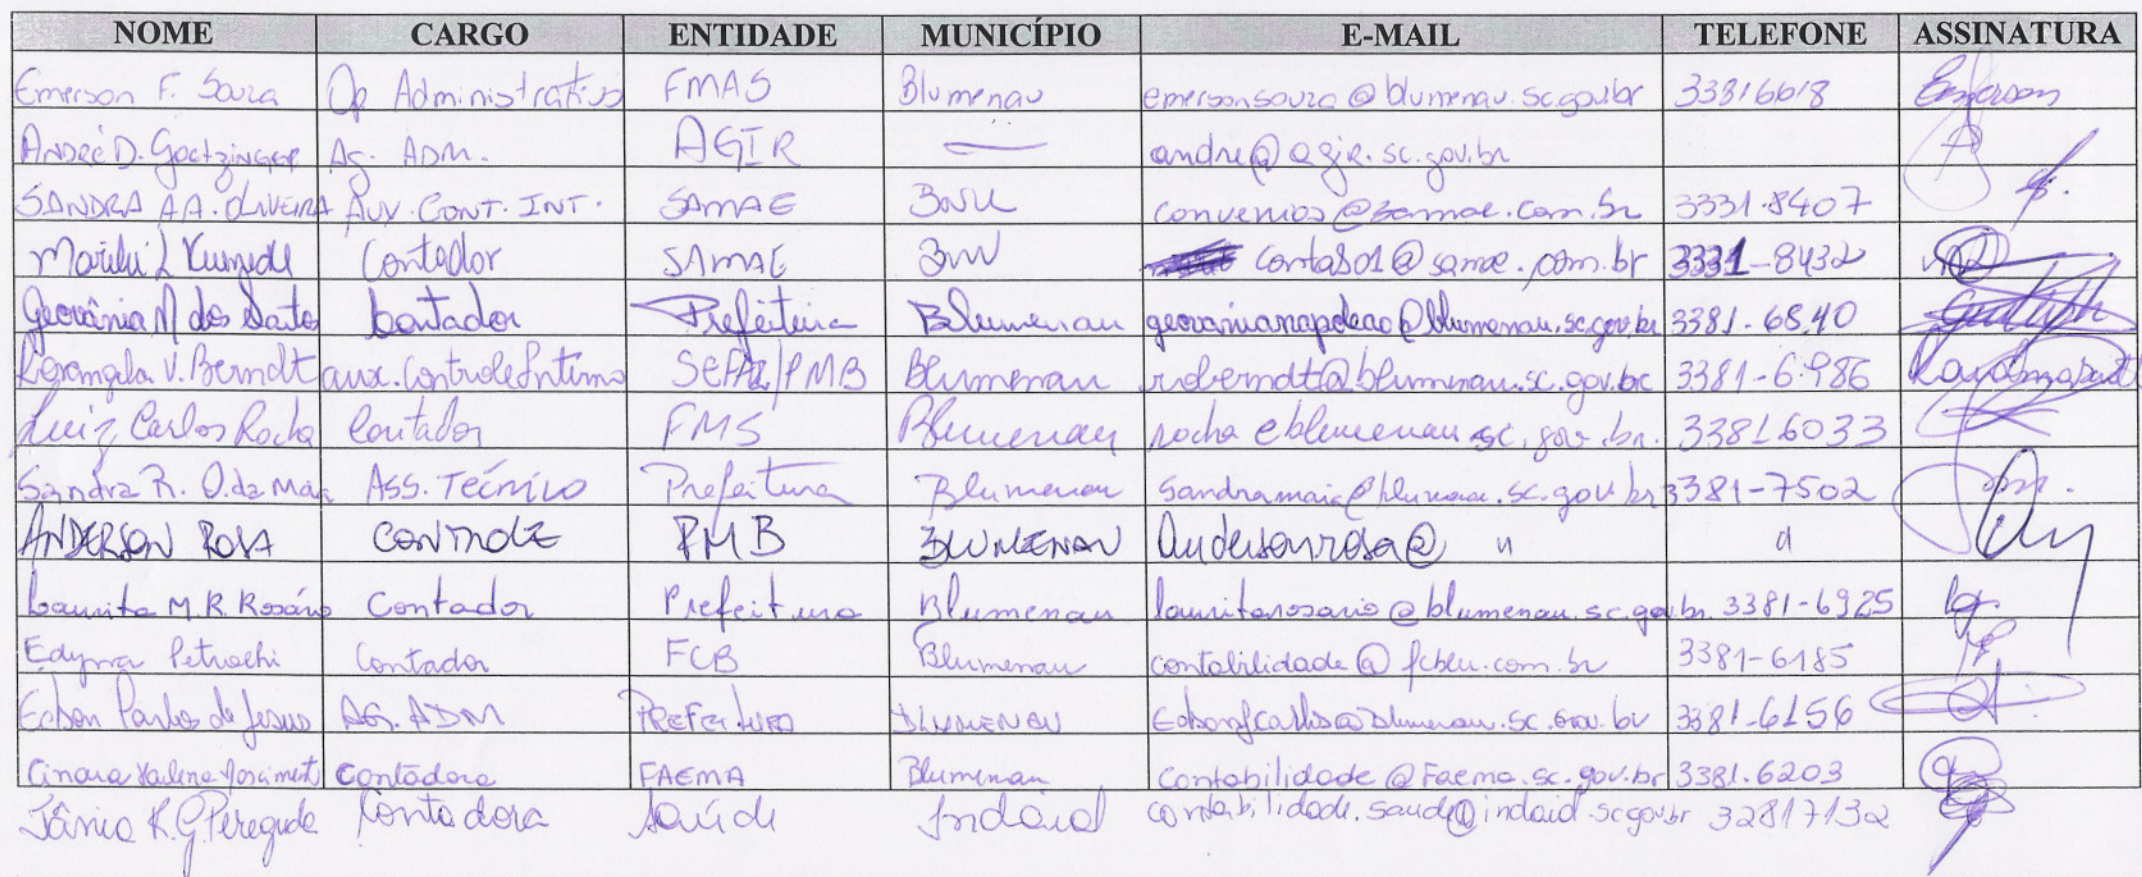 NOME CARGO ENTIDADE MUNICÍPIO E-MAIL TELEFONE ASSINATURA
Emerson F. Souza Op Administrativo FMAS Blumenau emersonsouza@blumenau.sc.gov.br 33816618 Emerson
André D. Goetzinger Ag. ADM. AGIR — andre@agir.sc.gov.br
SANDRA A.A. OLIVEIRA AUX. CONT. INT. SAMAE BNU convenios@samae.com.br 3331-8407
Contador SAMAE BNU contas01@samae.com.br 3331-8432
Geovânia N dos Santos Contador Prefeitura Blumenau 3381-6840
Rosangela V. Berndt aux. Controle Interno SEFAZ/PMB Blumenau roberndt@blumenau.sc.gov.br 3381-6986
Luiz Carlos Rocha Contador FMS Blumenau rocha@blumenau.sc.gov.br. 33816033
Sandra R. O. da Maia ASS. Técnico Prefeitura Blumenau sandramaia@blumenau.sc.gov.br 3381-7502
ANDERSON ROSA CONTROLE PMB BLUMENAU andersonrosa@ " "
Laurita M.R. Rosário Contador Prefeitura Blumenau lauritarosario@blumenau.sc.gov.br. 3381-6925
Contador FCB Blumenau contabilidade@fcblu.com.br 3381-6185
AG. ADM PREFEITURA BLUMENAU 3381-6156
Contadora FAEMA Blumenau contabilidade@Faema.sc.gov.br 3381.6203
Contadora Saúde Indaial contabilidade.saude@indaial.sc.gov.br 32817132